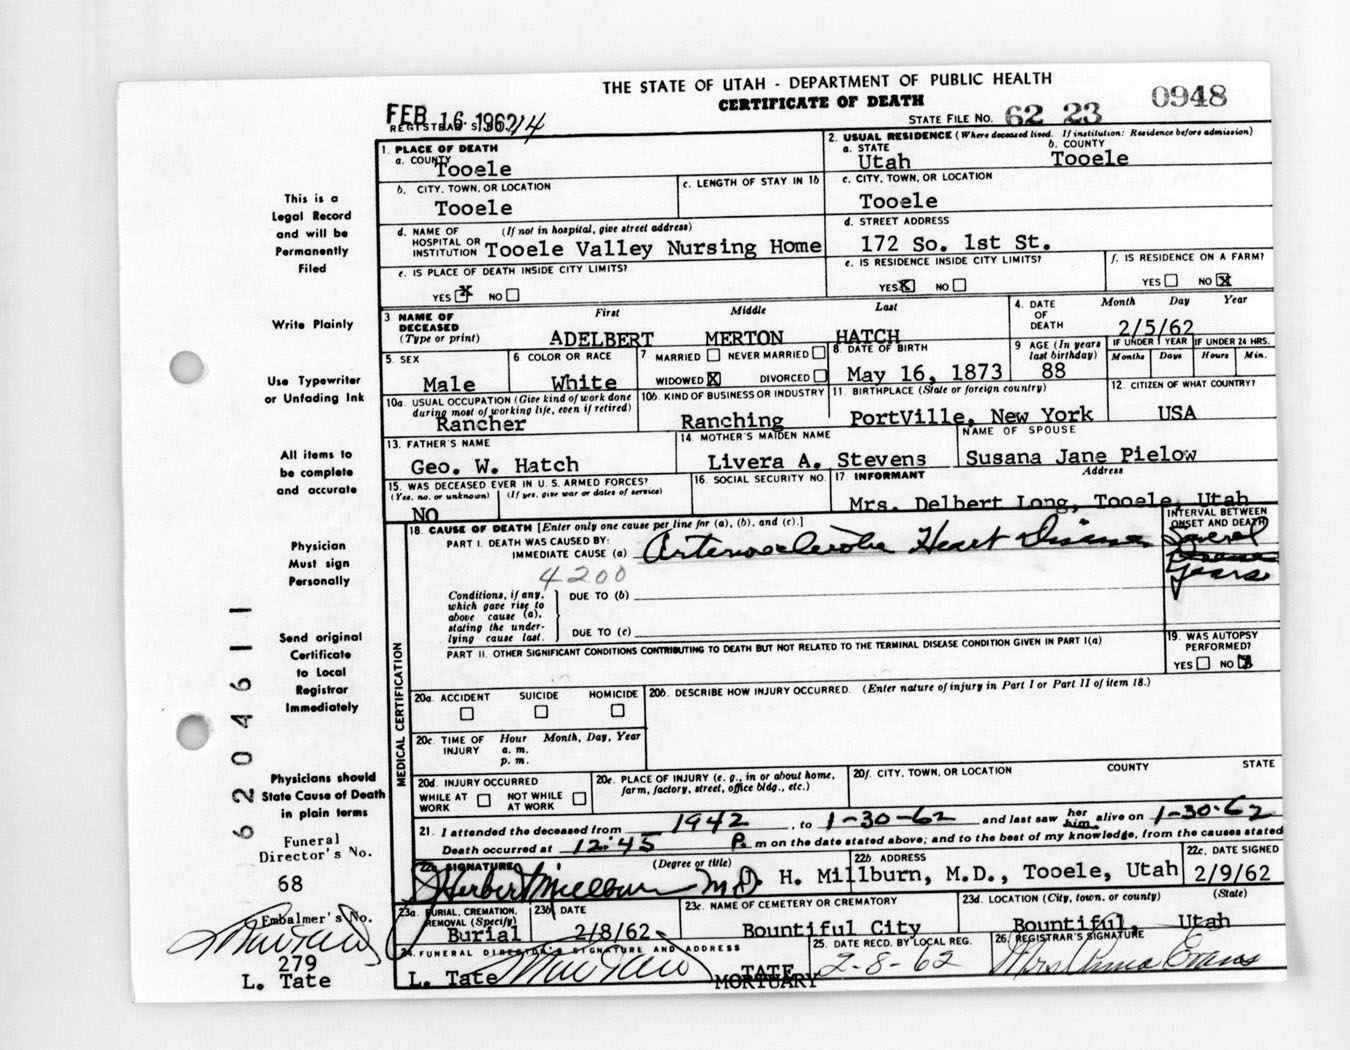 THE STATE OF UTAH - DEPARTMENT OF PUBLIC HEALTH
CERTIFICATE OF DEATH
0948
FEB 16 1962
REGISTRAR'S NO. 14
STATE FILE NO. 62 23
1. PLACE OF DEATH
a. COUNTY
Tooele
2. USUAL RESIDENCE (Where deceased lived. If institution: Residence before admission)
a. STATE
Utah
b. COUNTY
Tooele
b. CITY, TOWN, OR LOCATION
Tooele
c. LENGTH OF STAY IN 1b
c. CITY, TOWN, OR LOCATION
Tooele
d. NAME OF HOSPITAL OR INSTITUTION
(If not in hospital, give street address)
Tooele Valley Nursing Home
d. STREET ADDRESS
172 So. 1st St.
e. IS PLACE OF DEATH INSIDE CITY LIMITS?
YES X NO
e. IS RESIDENCE INSIDE CITY LIMITS?
YES X NO
f. IS RESIDENCE ON A FARM?
YES NO X
3. NAME OF DECEASED (Type or print)
First Middle Last
ADELBERT MERTON HATCH
4. DATE OF DEATH
Month Day Year
2/5/62
5. SEX
Male
6 COLOR OR RACE
White
7 MARRIED NEVER MARRIED
WIDOWED X DIVORCED
8. DATE OF BIRTH
May 16, 1873
9 AGE (In years last birthday)
88
IF UNDER 1 YEAR
Months Days
IF UNDER 24 HRS.
Hours Min.
10a. USUAL OCCUPATION (Give kind of work done during most of working life, even if retired)
Rancher
10b. KIND OF BUSINESS OR INDUSTRY
Ranching
11. BIRTHPLACE (State or foreign country)
PortVille, New York
12. CITIZEN OF WHAT COUNTRY?
USA
13. FATHER'S NAME
Geo. W. Hatch
14. MOTHER'S MAIDEN NAME
Livera A. Stevens
NAME OF SPOUSE
Susana Jane Pielow
15. WAS DECEASED EVER IN U.S. ARMED FORCES?
(Yes, no, or unknown) (If yes, give war or dates of service)
NO
16. SOCIAL SECURITY NO.
17. INFORMANT Address
Mrs. Delbert Long, Tooele, Utah
MEDICAL CERTIFICATION
18. CAUSE OF DEATH [Enter only one cause per line for (a), (b), and (c).]
PART I. DEATH WAS CAUSED BY:
IMMEDIATE CAUSE (a) Arteriosclerotic Heart Disease
INTERVAL BETWEEN ONSET AND DEATH
Several
Years
4200
Conditions, if any, which gave rise to above cause (a), stating the underlying cause last.
DUE TO (b)
DUE TO (c)
PART II. OTHER SIGNIFICANT CONDITIONS CONTRIBUTING TO DEATH BUT NOT RELATED TO THE TERMINAL DISEASE CONDITION GIVEN IN PART I(a)
19. WAS AUTOPSY PERFORMED?
YES NO X
20a. ACCIDENT SUICIDE HOMICIDE
20b. DESCRIBE HOW INJURY OCCURRED. (Enter nature of injury in Part I or Part II of item 18.)
20c. TIME OF INJURY
Hour Month, Day, Year
a. m.
p. m.
20d. INJURY OCCURRED
WHILE AT WORK NOT WHILE AT WORK
20e. PLACE OF INJURY (e. g., in or about home, farm, factory, street, office bldg., etc.)
20f. CITY, TOWN, OR LOCATION COUNTY STATE
21. I attended the deceased from 1942, to 1-30-62 and last saw her him alive on 1-30-62
Death occurred at 12:45 P. m on the date stated above; and to the best of my knowledge, from the causes stated
22a. SIGNATURE (Degree or title)
J Herbert Millburn M.D.
22b. ADDRESS
H. Millburn, M.D., Tooele, Utah
22c. DATE SIGNED
2/9/62
23a. BURIAL, CREMATION, REMOVAL (Specify)
Burial
23b. DATE
2/8/62
23c. NAME OF CEMETERY OR CREMATORY
Bountiful City
23d. LOCATION (City, town, or county) (State)
Bountiful, Utah
24. FUNERAL DIRECTOR'S SIGNATURE AND ADDRESS
L. Tate
TATE
MORTUARY
25. DATE RECD. BY LOCAL REG.
2-8-62
26. REGISTRAR'S SIGNATURE
Mrs Anna Evans
This is a
Legal Record
and will be
Permanently
Filed
Write Plainly
Use Typewriter
or Unfading Ink
All items to
be complete
and accurate
Physician
Must sign
Personally
Send original
Certificate
to Local
Registrar
Immediately
Physicians should
State Cause of Death
in plain terms
6204611
Funeral
Director's No.
68
Embalmer's No.
279
L. Tate